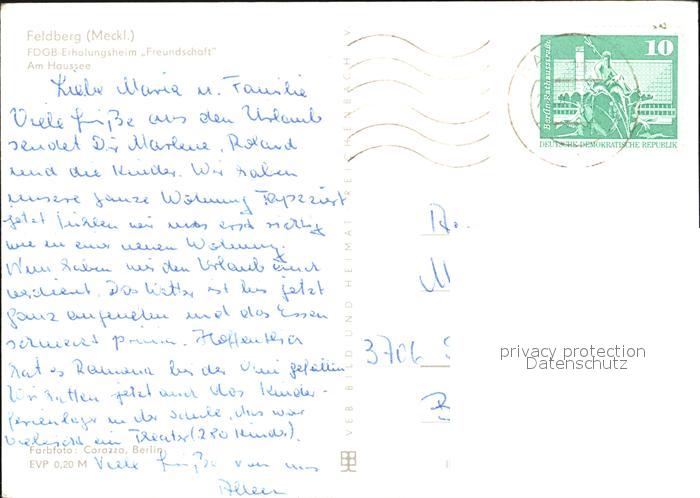 Feldberg (Meckl.)
FDGB-Erholungsheim „Freundschaft"
Am Haussee
Liebe Maria u. Familie
Viele Grüße aus dem Urlaub
sendet Dir Marlene, Roland
und die Kinder. Wir haben
unsere ganze Wohnung
jetzt fühlen wir uns erst richtig
wie in einer neuen Wohnung.
Nun haben wir den Urlaub auch
verdient. Das Wetter ist bis jetzt
ganz angenehm und das Essen
schmeckt prima. Hoffentlich
hat es Ramona bei der gefallen
Wir hatten jetzt auch das Kinder-
ferienlager in der Schule, das war
vielleicht ein Theater (280 Kinder).
Viele Grüße von uns
Allen
Farbfoto: Corazza, Berlin
EVP 0,20 M
VEB BILD UND HEIMAT REICHENBACH V
10
Berlin-Rathausstraße
DEUTSCHE DEMOKRATISCHE REPUBLIK
3706
privacy protection
Datenschutz